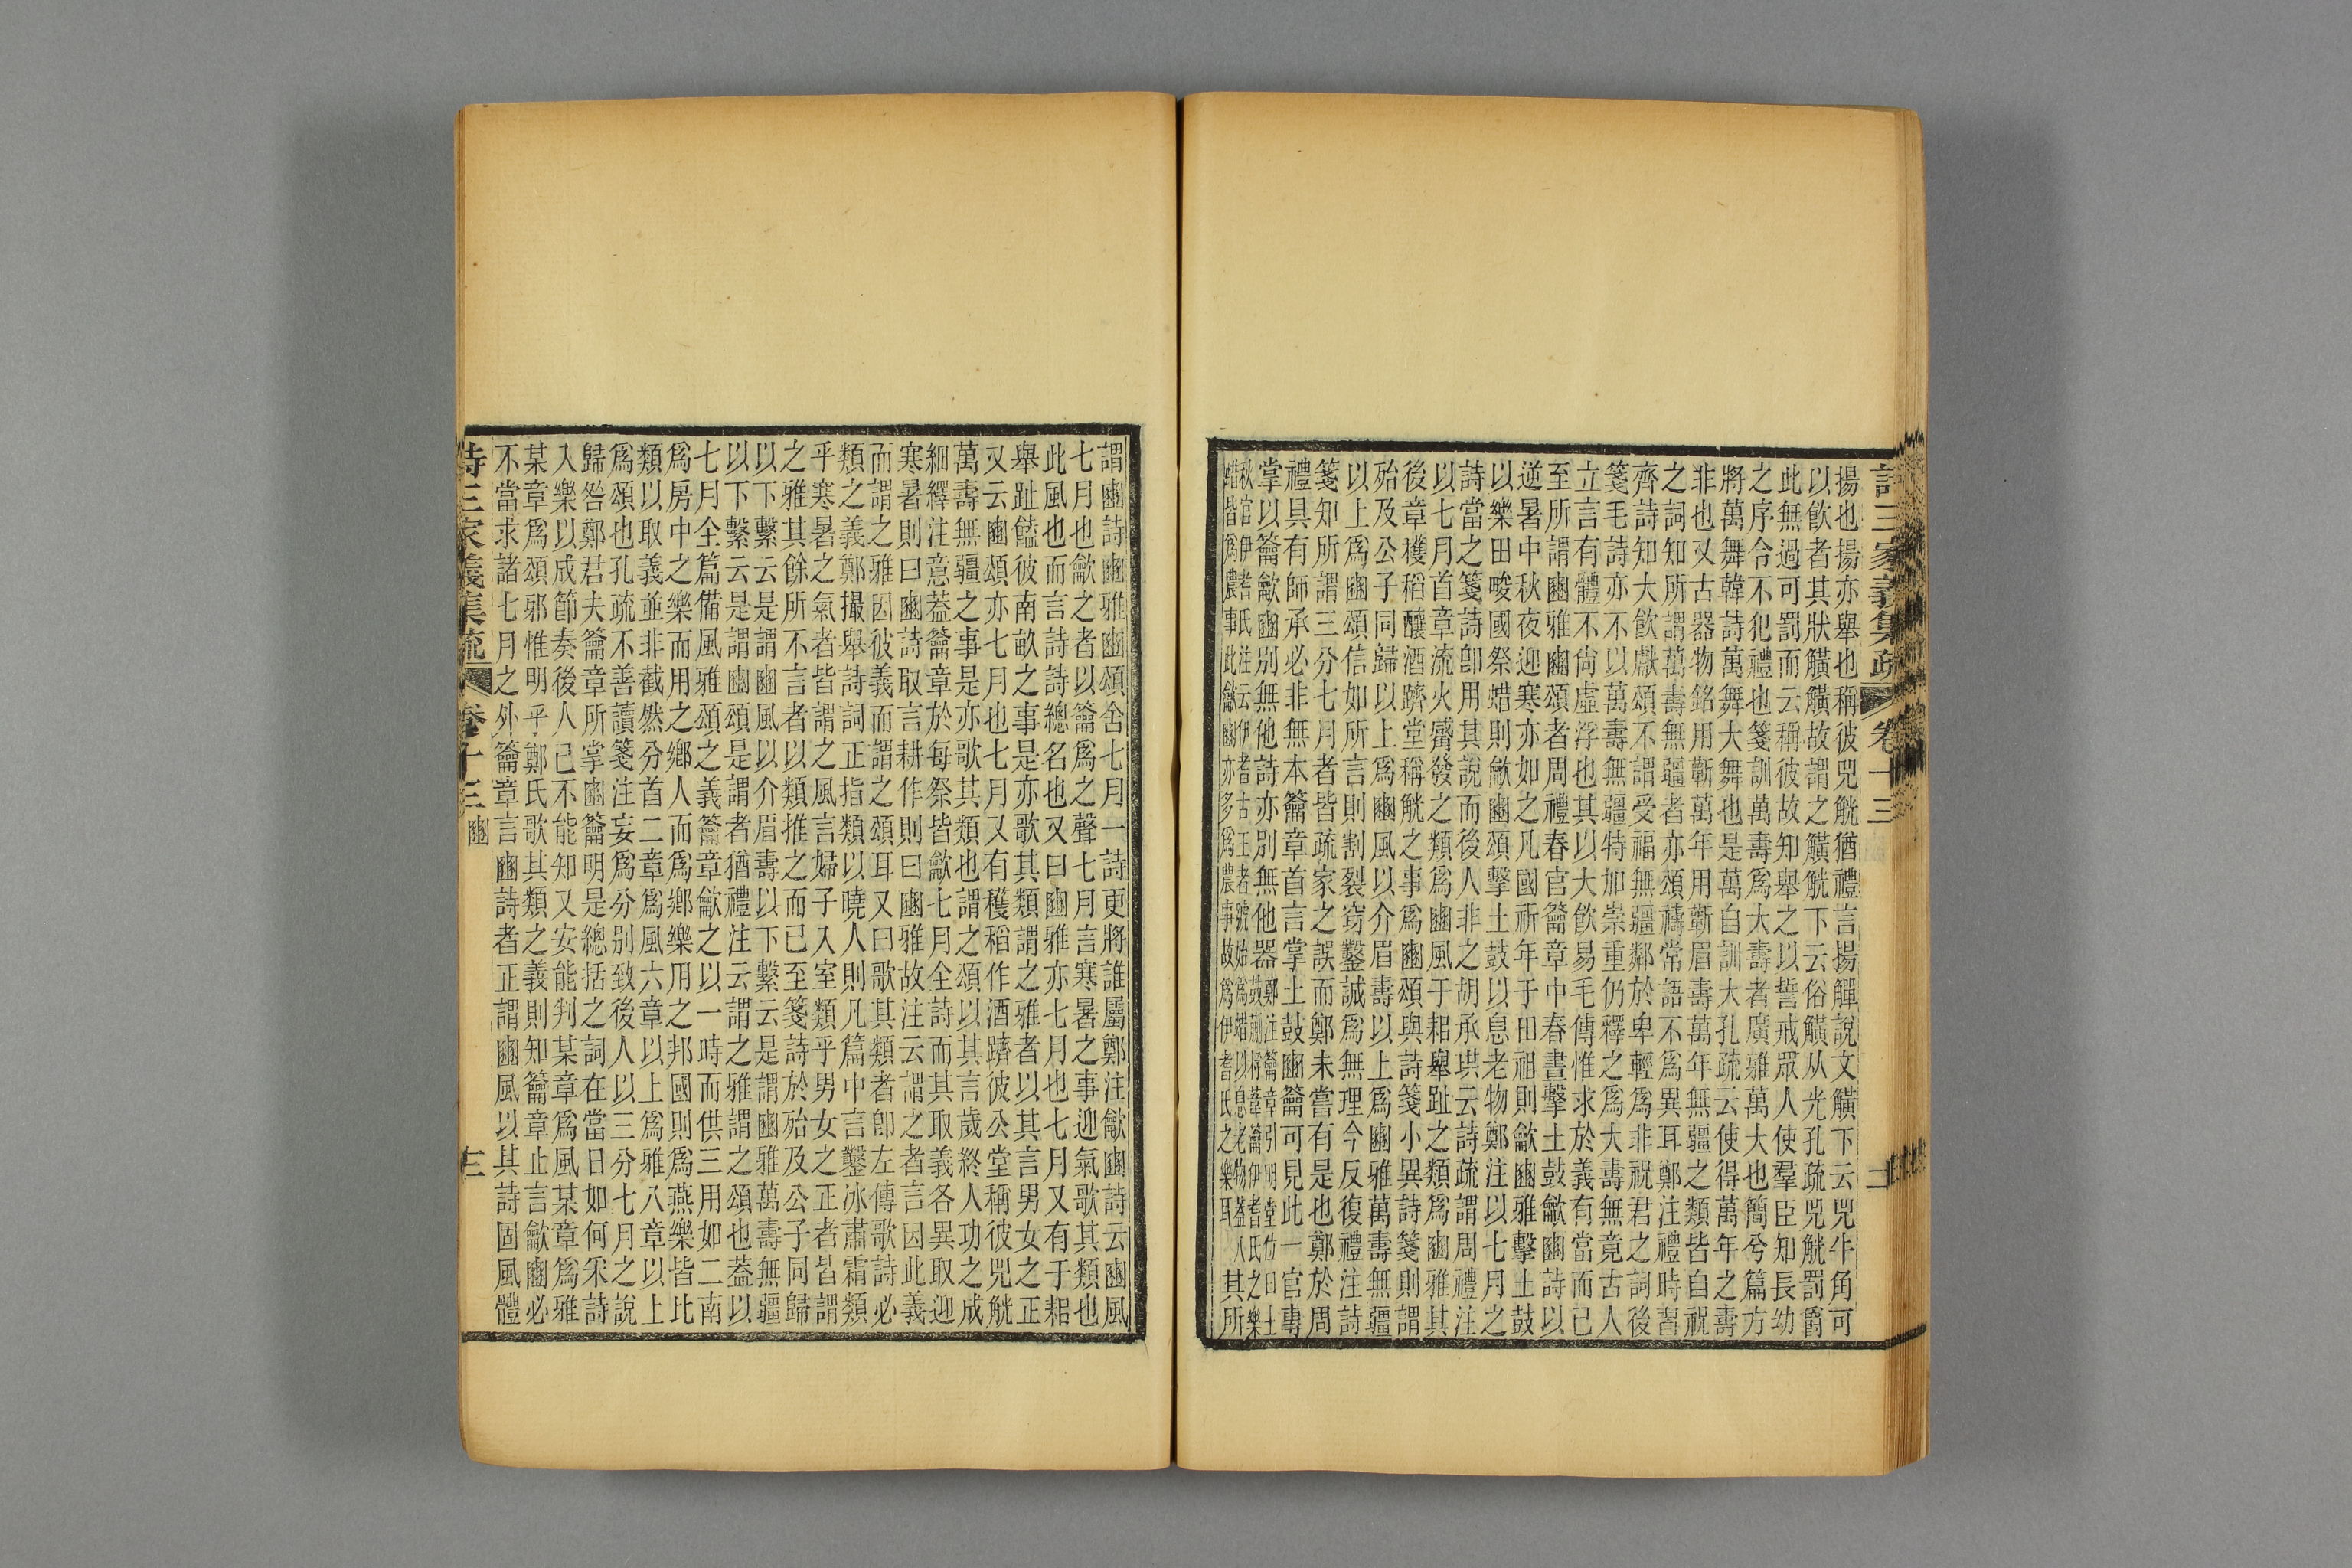 詩三家義集疏 卷十三
揚也揚亦舉也稱彼兕觥猶禮言揚觶說文觵下云兕牛角可
以飲者其狀觵觵故謂之觵觥下云俗觵从光孔疏兕觥罰爵
此無過可罰而云稱彼故知舉之以誓戒眾人使羣臣知長幼
之序令不犯禮也箋訓萬壽爲大壽者廣雅萬大也簡兮篇方
將萬舞韓詩萬舞大舞也是萬自訓大孔疏云使得萬年之壽
非也又古器物銘用蘄萬年用蘄眉壽萬年無疆之類皆自祝
之詞知所謂萬壽無疆者亦頌禱常語不爲異耳鄭注禮時習
齊詩知大飲獻頌不謂受福無疆鄰於卑輕爲非祝君之詞後
箋毛詩亦不以萬壽無疆特加崇重仍釋之爲大壽無竟古人
立言有體不尙虛浮也其以大飲易毛傳惟求於義有當而已
至所謂豳雅豳頌者周禮春官籥章中春晝擊土鼓龡豳詩以
逆暑中秋夜迎寒亦如之凡國祈年于田祖則龡豳雅擊土鼓
以樂田畯國祭蜡則龡豳頌擊土鼓以息老物鄭注以七月之
詩當之箋詩卽用其說而後人非之胡承珙云詩疏謂周禮注
以七月首章流火觱發之類爲豳風于耜舉趾之類爲豳雅其
後章穫稻釀酒躋堂稱觥之事爲豳頌與詩箋小異詩箋則謂
殆及公子同歸以上爲豳風以介眉壽以上爲豳雅萬壽無疆
以上爲豳頌信如所言則割裂穷鑿誠爲無理今反復禮注詩
箋知所謂三分七月者皆疏家之誤而鄭未嘗有是也鄭於周
禮具有師承必非無本籥章首言掌土鼓豳籥可見此一官專
掌以籥龡豳別無他詩亦別無他器鄭注籥章引明堂位曰土鼓蒯桴葦籥伊耆氏之樂
秋官伊耆氏注云伊耆古王者號始爲蜡以息老物蓋八蜡皆爲農事此龡豳亦多爲農事故爲伊耆氏之樂耳其所
謂豳詩豳雅豳頌舍七月一詩更將誰屬鄭注龡豳詩云豳風
七月也龡之者以籥爲之聲七月言寒暑之事迎氣歌其類也
此風也而言詩詩總名也又曰豳雅亦七月也七月又有于耜
舉趾饁彼南畝之事是亦歌其類謂之雅者以其言男女之正
又云豳頌亦七月也七月又有穫稻作酒躋彼公堂稱彼兕觥
萬壽無疆之事是亦歌其類也謂之頌以其言歲終人功之成
細繹注意蓋籥章於每祭皆龡七月全詩而其取義各異取迎
寒暑則曰豳詩取言耕作則曰豳雅故注云謂之者言因此義
而謂之雅因彼義而謂之頌耳又曰歌其類者卽左傳歌詩必
類之義鄭撮舉詩詞正指類以曉人則凡篇中言鑿冰肅霜類
乎寒暑之氣者皆謂之風言婦子入室類乎男女之正者皆謂
之雅其餘所不言者以類推之而已至箋詩於殆及公子同歸
以下繫云是謂豳風以介眉壽以下繫云是謂豳雅萬壽無疆
以下繫云是謂豳頌是謂者猶禮注云謂之雅謂之頌也蓋以
七月全篇備風雅頌之義籥章龡之以一時而供三用如二南
爲房中之樂而用之鄉人而爲鄉樂用之邦國則爲燕樂皆比
類以取義並非截然分首二章爲風六章以上爲雅八章以上
爲頌也孔疏不善讀箋注妄爲分別致後人以三分七月之說
歸咎鄭君夫籥章所掌豳籥明是總括之詞在當日如何采詩
入樂以成節奏後人已不能知又安能判某章爲風某章爲雅
某章爲頌邪惟明乎鄭氏歌其類之義則知籥章止言龡豳必
不當求諸七月之外籥章言豳詩者正謂豳風以其詩固風體
詩三家義集疏 卷十三 豳